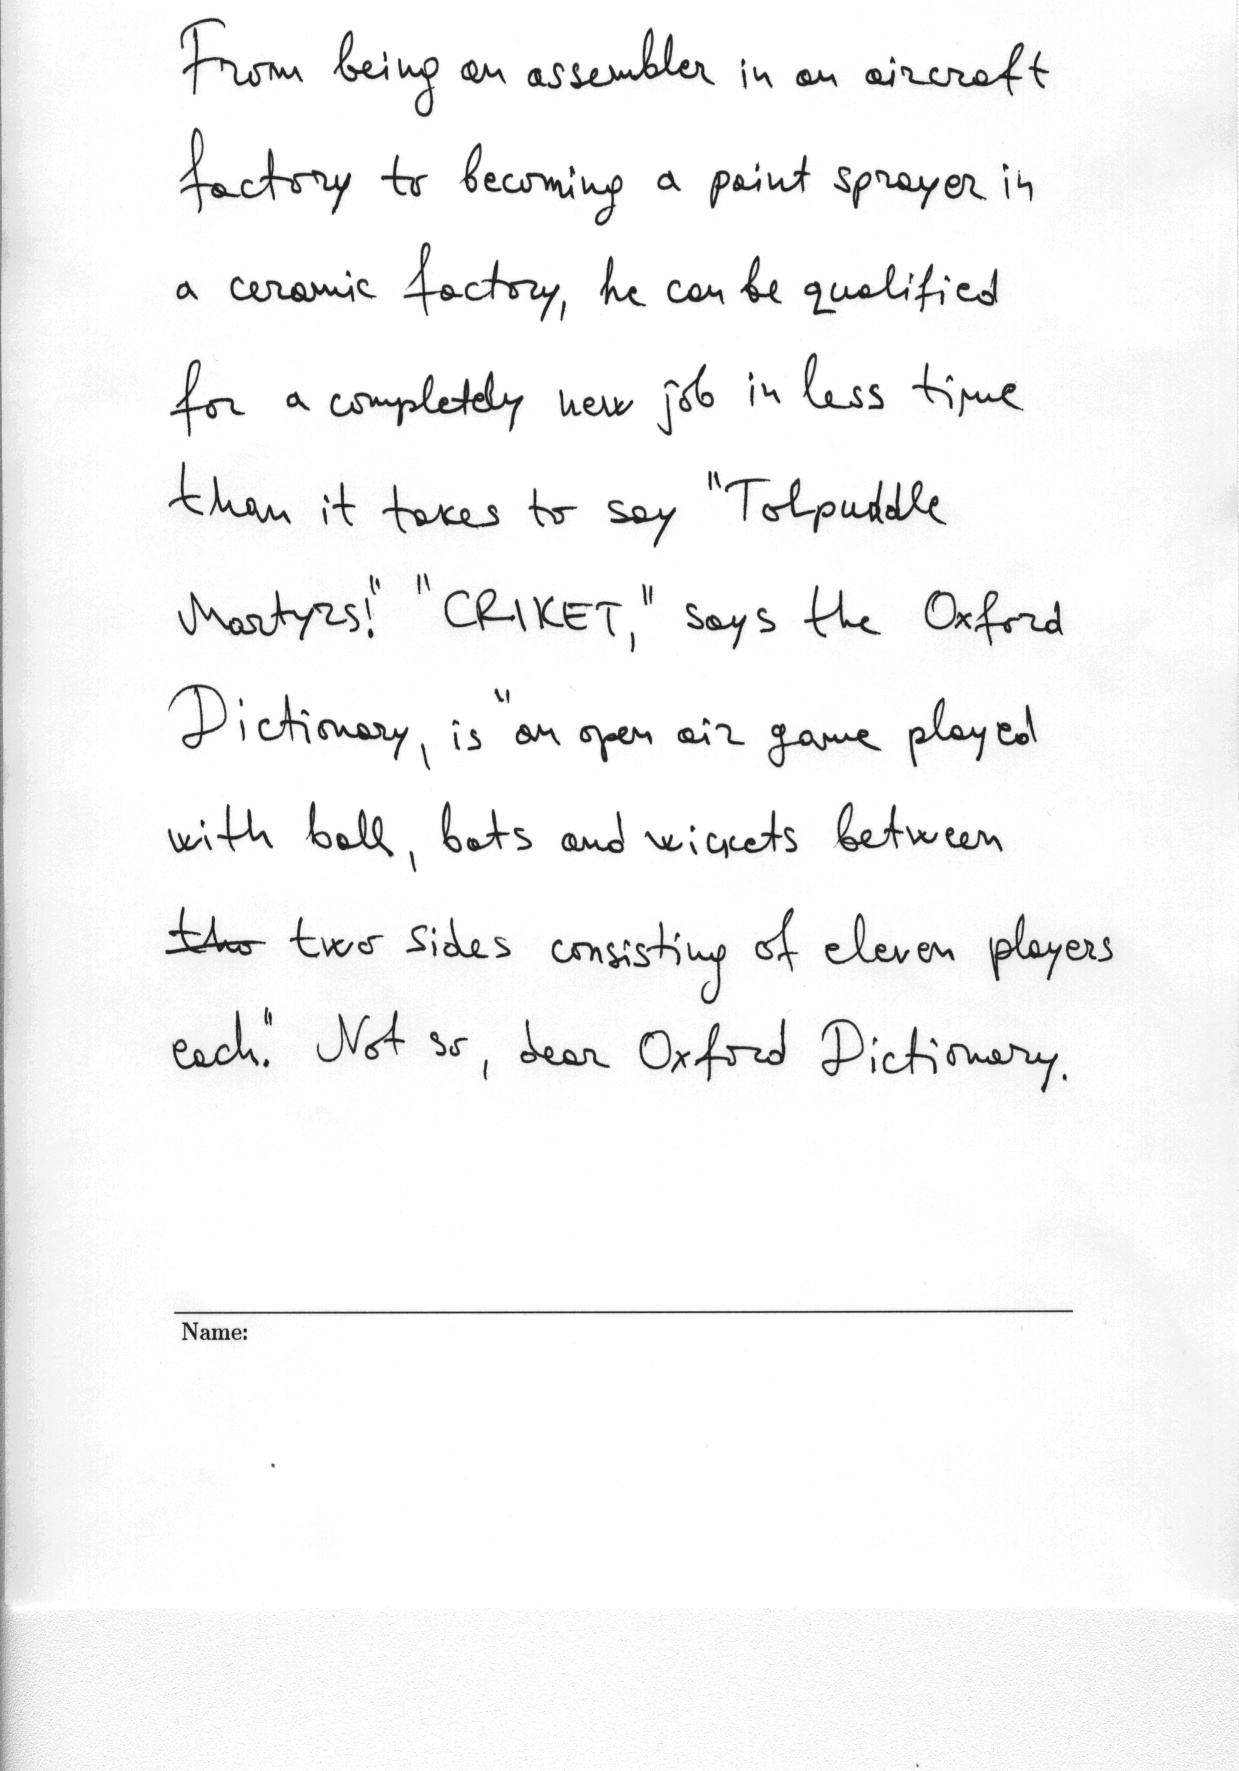 From being an assembler in an aircraft
factory to becoming a paint sprayer in
a ceramic factory, he can be qualified
for a completely new job in less time
than it takes to say "Tolpuddle
Martyrs!" "CRIKET," says the Oxford
Dictionary, is "an open air game played
with ball, bats and wickets between
tho two sides consisting of eleven players
each." Not so, dear Oxford Dictionary.
Name: